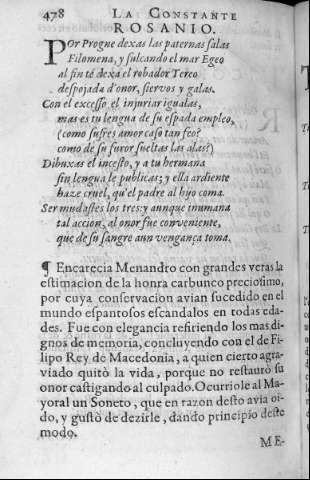 478 LA CONSTANTE
ROSANIO.
POr Progne dexas las paternas salas
Filomena, y sulcando el mar Egeo
al fin té dexa el robador Tereo
despojada d'onor, siervos y galas.
Con el excesso el injuriar igualas,
mas es tu lengua de su espada empleo,
(como sufres amor caso tan feo?
como de su furor sueltas las alas?)
Dibuxas el incesto, y a tu hermana
sin lengua le publicas; y ella ardiente
haze cruel, qu'el padre al hijo coma.
Ser mudastes los tres: y aunque inumana
tal accion, al onor fue conveniente,
que de su sangre aun vengança toma.
¶ Encarecia Menandro con grandes veras la
estimacion de la honra carbunco preciosimo,
por cuya conservacion avian sucedido en el
mundo espantosos escandalos en todas eda-
des. Fue con elegancia refiriendo los mas di-
gnos de memoria, concluyendo con el de Fi-
lipo Rey de Macedonia, a quien cierto agra-
viado quitò la vida, porque no restaurò su
onor castigando al culpado. Ocurriole al Ma-
yoral un Soneto, que en razon desto avia oi-
do, y gustò de dezirle, dando principio deste
modo.
ME-